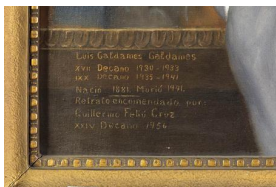 Luis Galdames Galdames
XVII Decano 1930-1933
IXX Decano 1935-1941
Nació 1881 Murió 1941
Retrato encomendado por
Guillermo Feliú Cruz
XXIV Decano 1956